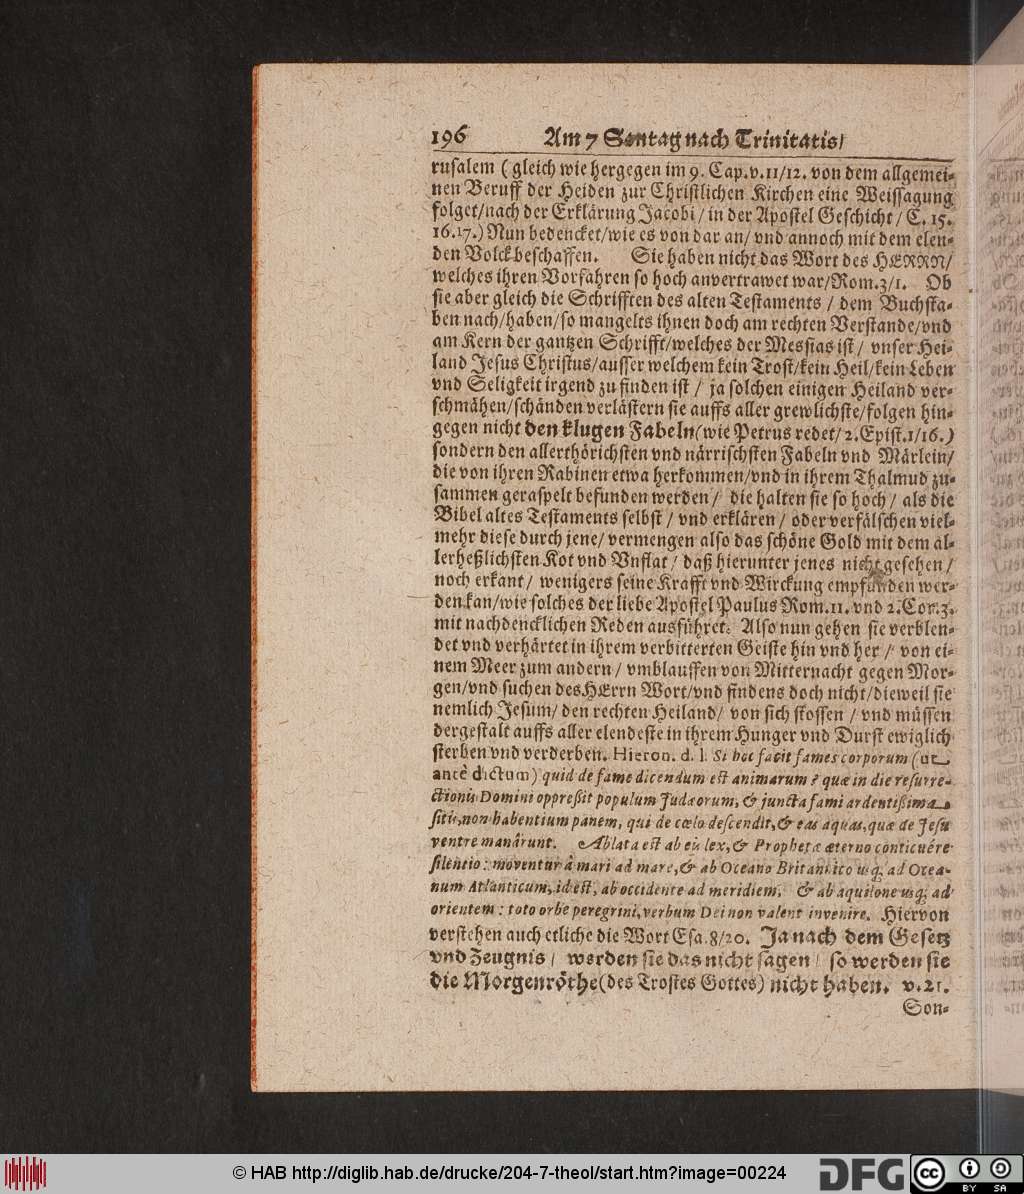 196 Am 7 Sontag nach Trinitatis/
rusalem (gleich wie hergegen im 9. Cap.v.11/12. von dem allgemei-
nen Beruff der Heiden zur Christlichen Kirchen eine Weissagung
folget/nach der Erklärung Jacobi/in der Apostel Geschicht/C. 15.
16.17.) Nun bedencket/wie es von dar an/vnd annoch mit dem elen-
den Volck beschaffen. Sie haben nicht das Wort des HERRN/
welches ihren Vorfahren so hoch anvertrawet war/Rom.3/1. Ob
sie aber gleich die Schrifften des alten Testaments/dem Buchsta-
ben nach/haben/so mangelts ihnen doch am rechten Verstande/vnd
am Kern der gantzen Schrifft/welches der Messias ist/vnser Hei-
land Jesus Christus/ausser welchem kein Trost/kein Heil/kein Leben
vnd Seligkeit irgend zu finden ist/ja solchen einigen Heiland ver-
schmähen/schänden verlästern sie auffs aller grewlichste/folgen hin-
gegen nicht den klugen Fabeln(wie Petrus redet/2.Epist.1/16.)
sondern den allerthörichsten vnd närrischsten Fabeln vnd Märlein/
die von ihren Rabinen etwa herkommen/vnd in ihrem Thalmud zu-
sammen geraspelt befunden werden/die halten sie so hoch/als die
Bibel altes Testaments selbst/vnd erklären/oder verfälschen viel-
mehr diese durch jene/vermengen also das schöne Gold mit dem al-
lerheßlichsten Kot vnd Vnflat/daß hierunter jenes nicht gesehen/
noch erkant/wenigers seine Krafft vnd Wirckung empfunden wer-
den kan/wie solches der liebe Apostel Paulus Rom.11. vnd 2.Cor.3.
mit nachdencklichen Reden ausführet. Also nun gehen sie verblen-
det vnd verhärtet in ihrem verbitterten Geiste hin vnd her/von ei-
nem Meer zum andern/vmblauffen von Mitternacht gegen Mor-
gen/vnd suchen des HErrn Wort/vnd findens doch nicht/dieweil sie
nemlich Jesum/den rechten Heiland/von sich stossen/vnd müssen
dergestalt auffs aller elendeste in ihrem Hunger vnd Durst ewiglich
sterben vnd verderben. Hieron. d. l. Si hoc facit fames corporum (ut
antè dictum) quid de fame dicendum est animarum? quæ in die resurre-
ctionis Domini oppreßit populum Judæorum, & juncta fami ardentißima
sitis, non habentium panem, qui de cœlo descendit, & eas aquas, quæ de Jesu
ventre manârunt. Ablata est ab eis lex, & Prophetæ æterno conticuére
silentio: moventur à mari ad mare, & ab Oceano Britannico usq; ad Ocea-
num Atlanticum, id est, ab occidente ad meridiem, & ab aquilone usq; ad
orientem: toto orbe peregrini, verbum Dei non valent invenire. Hiervon
verstehen auch etliche die Wort Esa.8/20. Ja nach dem Gesetz
vnd Zeugnis/werden sie das nicht sagen/so werden sie
die Morgenröthe(des Trostes Gottes) nicht haben. v.21.
Son-
© HAB http://diglib.hab.de/drucke/204-7-theol/start.htm?image=00224
DFG
cc BY SA